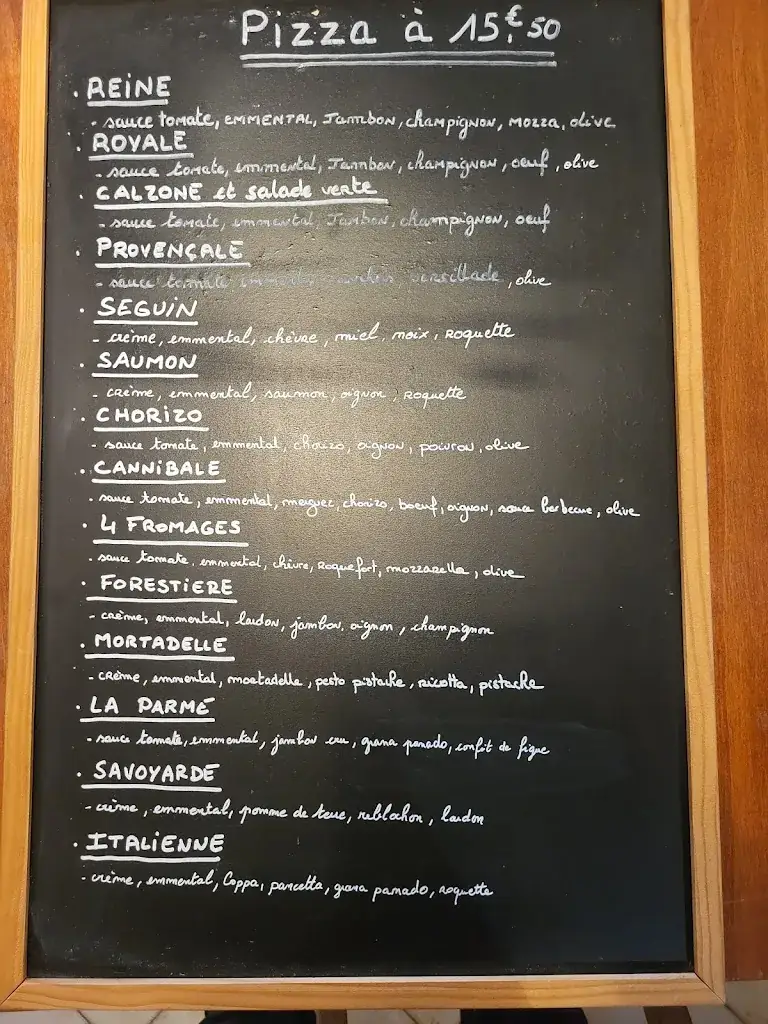 Pizza à 15,€50
. REINE
- sauce tomate, EMMENTAL, Jambon, champignon, mozza, olive
. ROYALE
- sauce tomate, emmental, Jambon, champignon, oeuf, olive
. CALZONE et salade verte
- sauce tomate, emmental, Jambon, champignon, oeuf
. PROVENÇALE
- sauce tomate persillade, olive
. SEGUIN
- crème, emmental, chèvre, miel, noix, Roquette
. SAUMON
- crème, emmental, saumon, oignon, Roquette
. CHORIZO
- sauce tomate, emmental, chorizo, oignon, poivron, olive
. CANNIBALE
- sauce tomate, emmental, merguez, chorizo, boeuf, oignon, sauce barbecue, olive
. 4 FROMAGES
- sauce tomate, emmental, chèvre, Roquefort, mozzarella, olive
. FORESTIERE
- crème, emmental, lardon, jambon, oignon, champignon
. MORTADELLE
- crème, emmental, mortadelle, pesto pistache, ricotta, pistache
. LA PARME
- sauce tomate, emmental, jambon cru, grana panado, confit de figue
. SAVOYARDE
- crème, emmental, pomme de terre, reblochon, lardon
. ITALIENNE
- crème, emmental, Coppa, pancetta, grana panado, roquette